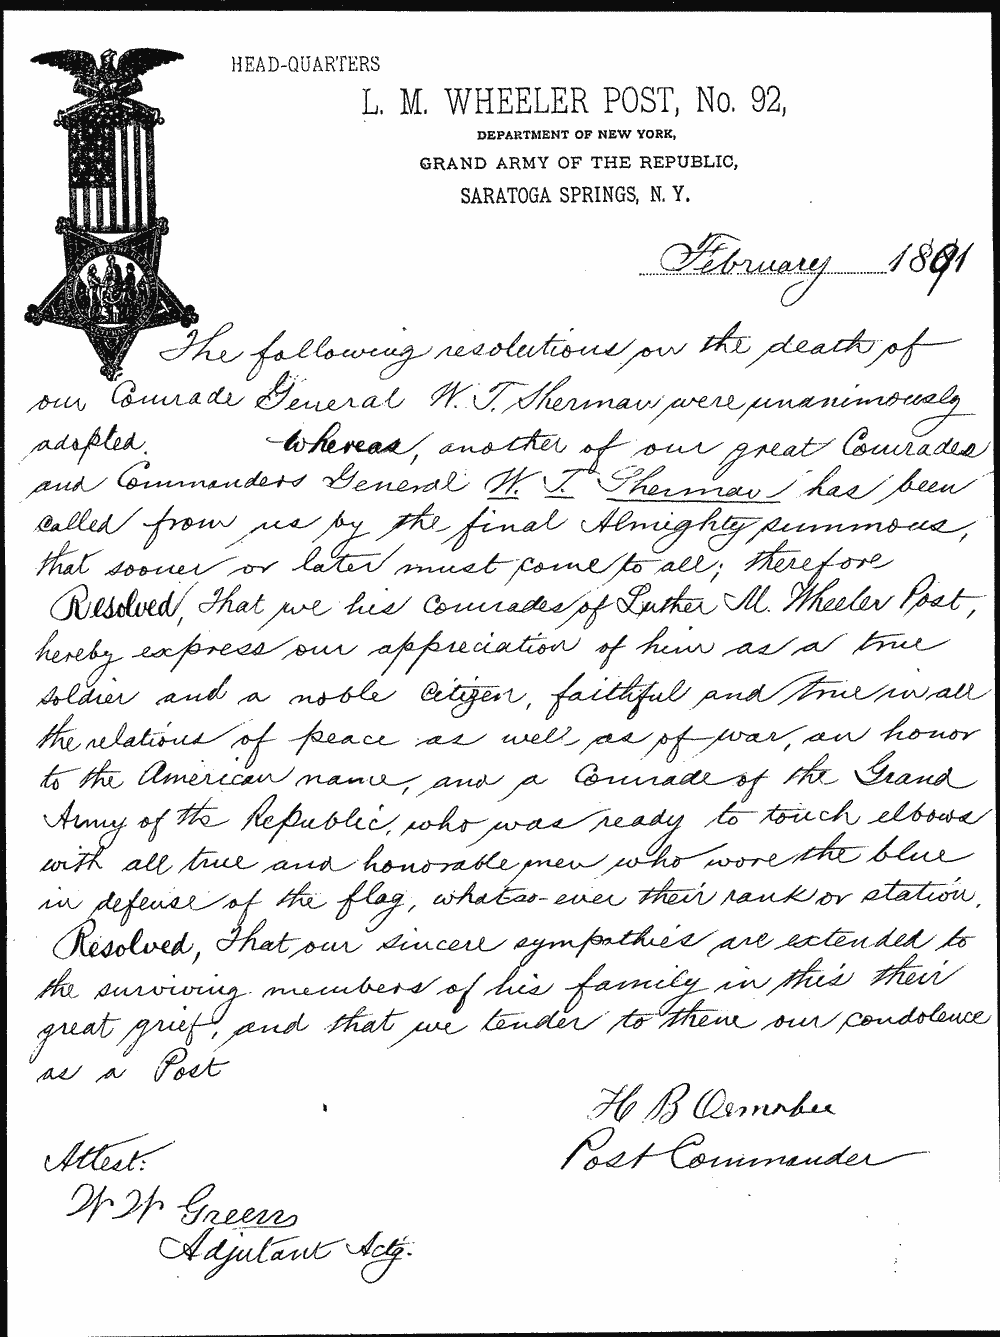 HEAD-QUARTERS
L. M. WHEELER POST, No. 92,
DEPARTMENT OF NEW YORK,
GRAND ARMY OF THE REPUBLIC,
SARATOGA SPRINGS, N. Y.
February 1891
The following resolutions on the death of
our Comrade General W. T. Sherman were unanimously
adopted. Whereas, another of our great Comrades
and Commanders General W. T. Sherman has been
called from us by the final Almighty summons,
that sooner or later must come to all; therefore
Resolved, That we his comrades of Luther M. Wheeler Post,
hereby express our appreciation of him as a true
soldier and a noble citizen, faithful and true in all
the relations of peace as well as of war, an honor
to the American name, and a Comrade of the Grand
Army of the Republic, who was ready to touch elbows
with all true and honorable men who wore the blue
in defense of the flag, whatso-ever their rank or station.
Resolved, That our sincere sympathies are extended to
the surviving members of his family in this their
great grief, and that we tender to them our condolence
as a Post
H B
Post Commander
Attest:
W W Green
Adjutant Actg.